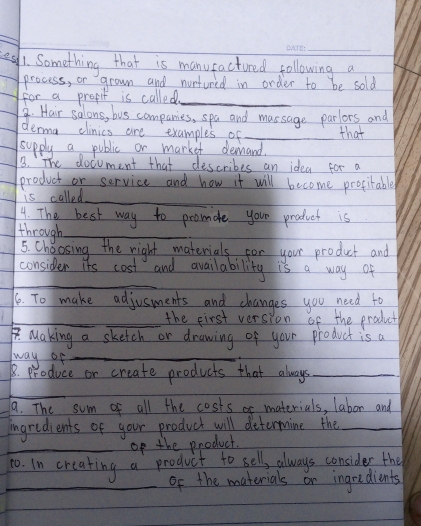 DATE:
1. Something that is manufactured following a
process, or grown and nurtured in order to be sold
for a profit is called
2. Hair salons, bus companies, spa and massage parlors and
derma clinics are examples of that
supply a public or market demand.
3. The document that describes an idea for a
product or service and how it will become profitable
is called
4. The best way to promote your product is
through
5. Choosing the right materials for your product and
consider its cost and availability is a way of
6. To make adjusments and changes you need to
the first version of the product
7. Making a sketch or drawing of your product is a
way of
8. Produce or create products that always
9. The sum of all the costs of materials, labor and
ingredients of your product will determine the
of the product.
10. In creating a product to sell, always consider the
of the materials or ingredients